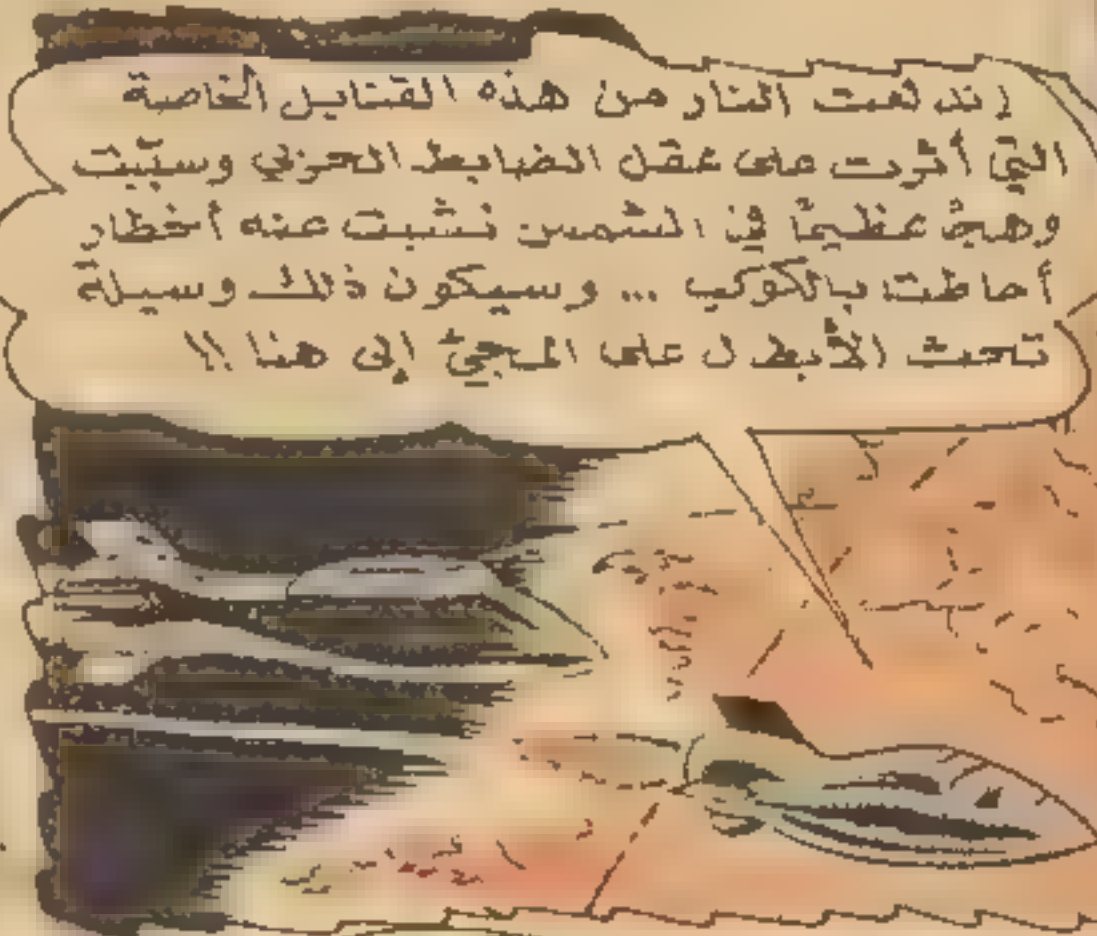 إندلعت النار من هذه القنابل الخاصة
التي أثرت على عقل الضابط الحزبي وسبّبت
وهجً عظيماً في الشمس نشبت عنه أخطار
أحاطت بالكوكب ... وسيكون ذلك وسيلة
تحث الأبطال على المجيّ إلى هنا !!